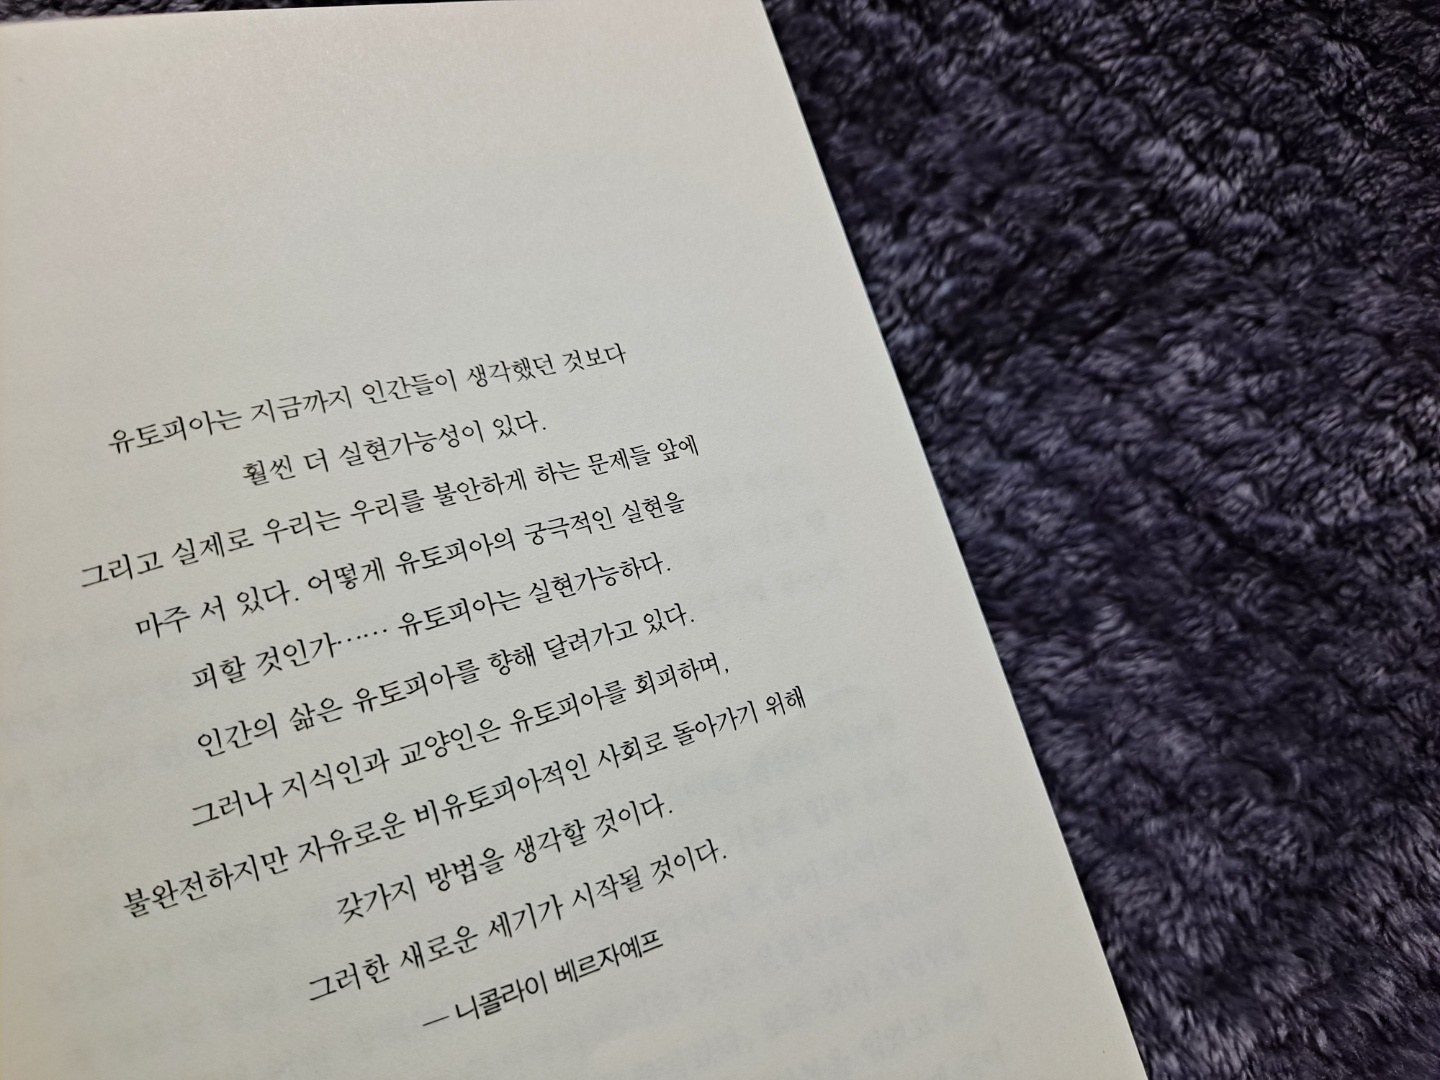 유토피아는 지금까지 인간들이 생각했던 것보다
훨씬 더 실현가능성이 있다.
그리고 실제로 우리는 우리를 불안하게 하는 문제들 앞에
마주 서 있다. 어떻게 유토피아의 궁극적인 실현을
피할 것인가…… 유토피아는 실현가능하다.
인간의 삶은 유토피아를 향해 달려가고 있다.
그러나 지식인과 교양인은 유토피아를 회피하며,
불완전하지만 자유로운 비유토피아적인 사회로 돌아가기 위해
갖가지 방법을 생각할 것이다.
그러한 새로운 세기가 시작될 것이다.
― 니콜라이 베르자예프